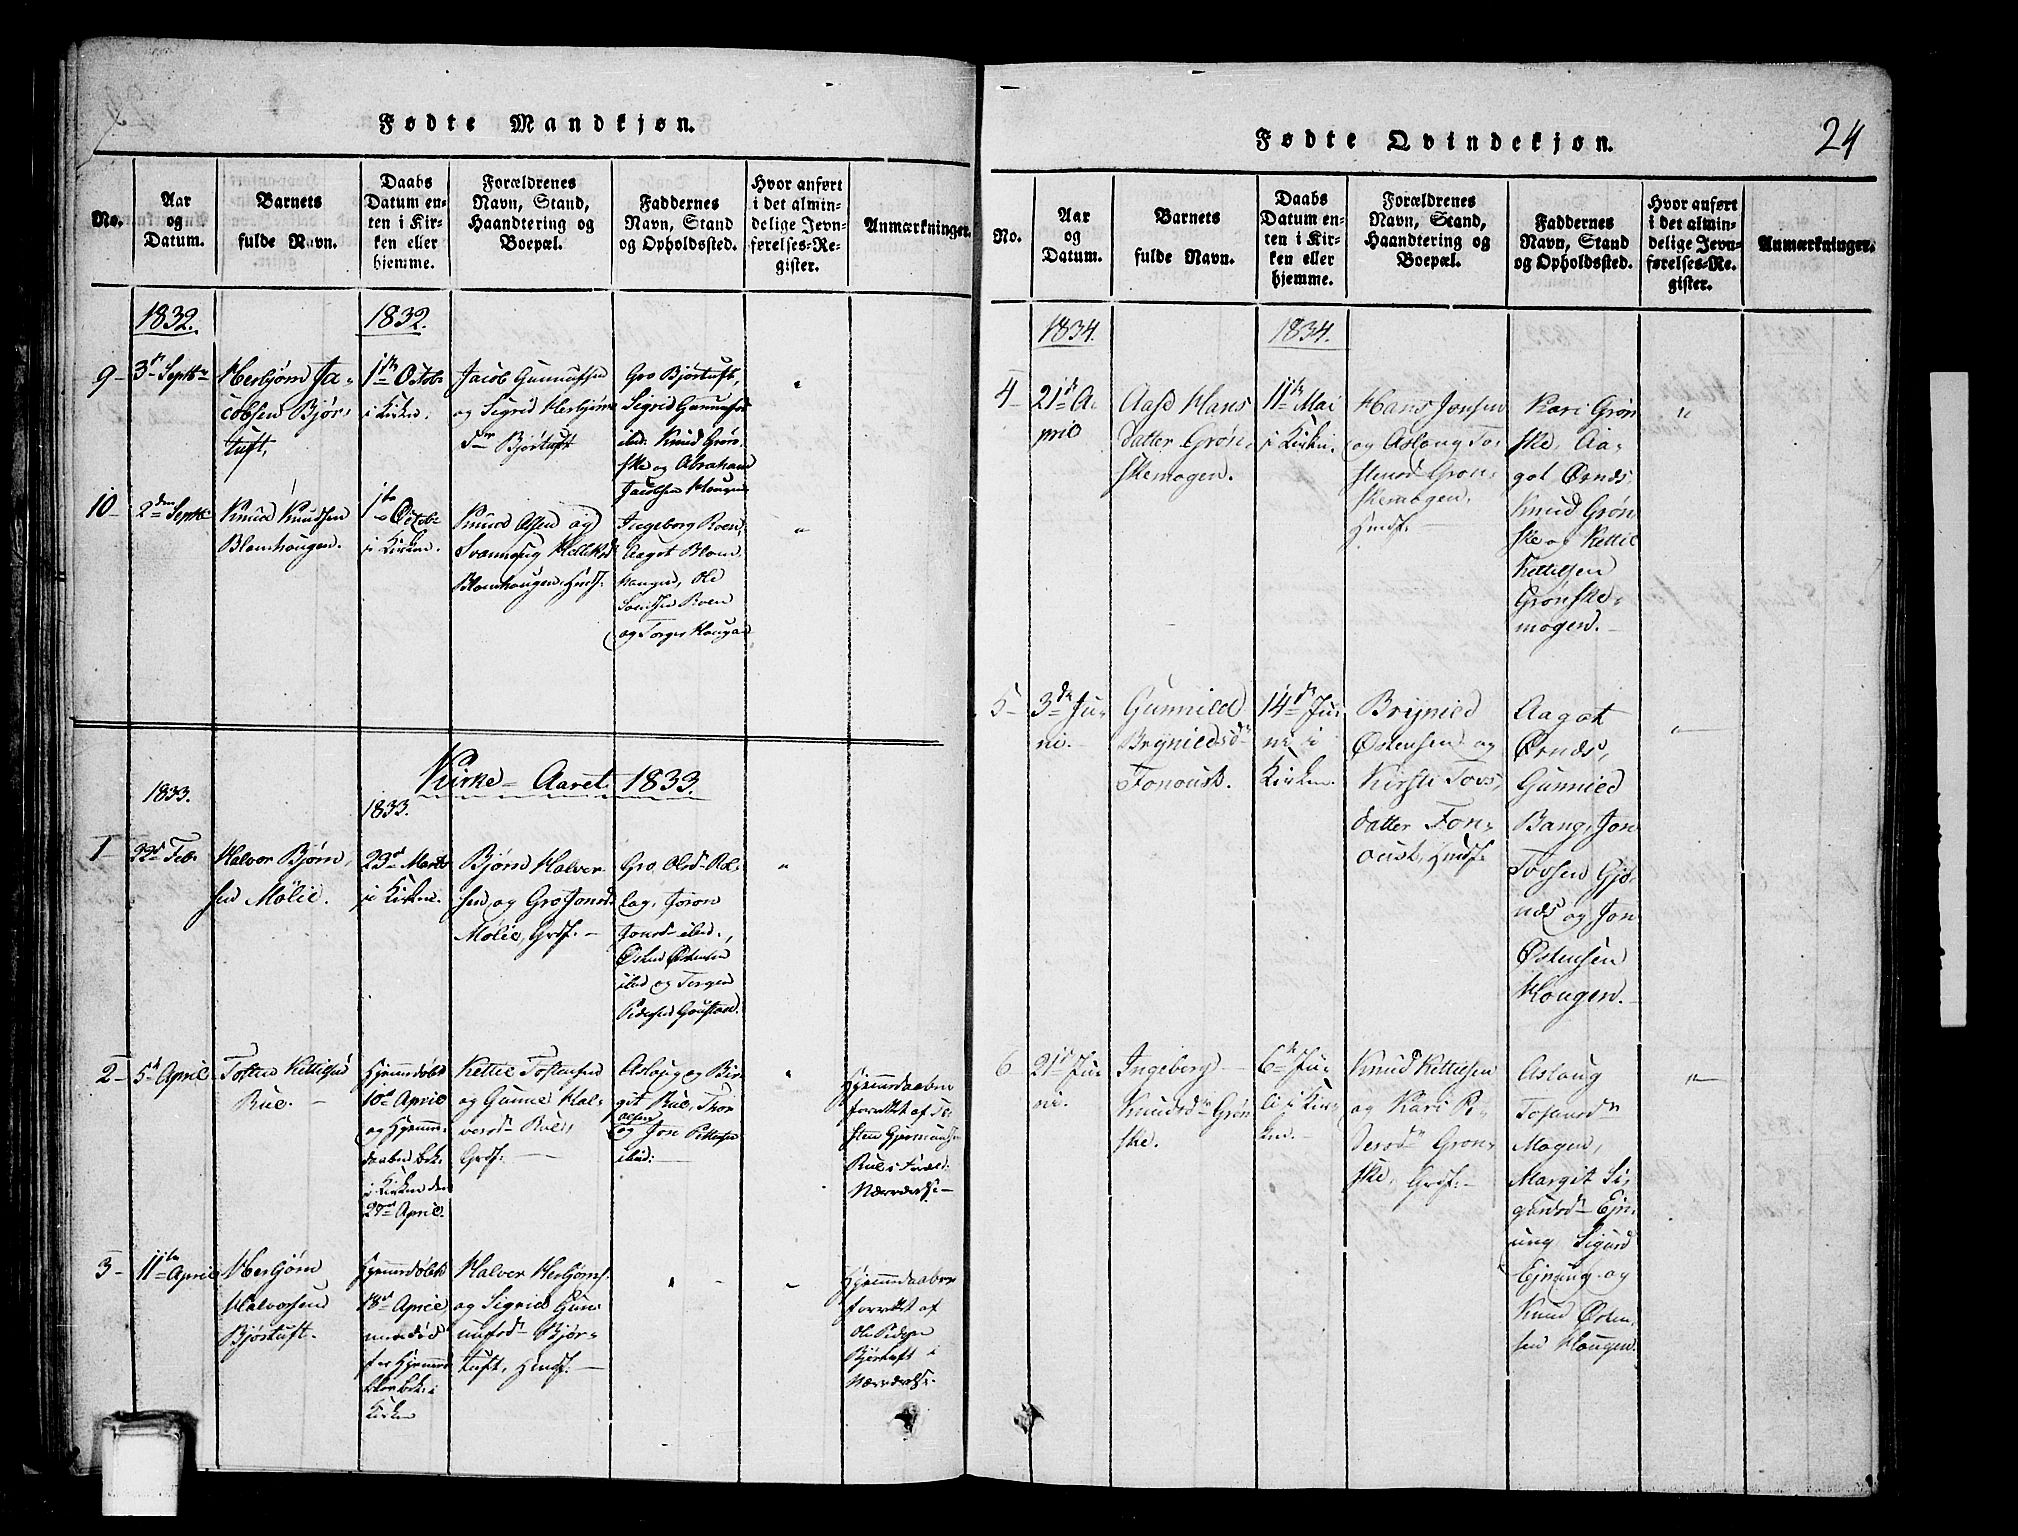 Fødte Mandkjøn.
No.
Aar
og
Datum.
Barnets
fulde Navn.
Daabs
Datum en-
ten i Kir-
ken eller
hjemme.
Forældrenes
Navn, Stand,
Haandtering og
Boepæl.
Faddernes
Navn, Stand
og Opholdssted.
Hvor anført
i det almin-
delige Jevn-
førelses-Re-
gister.
Anmærkninger.
1832.
1832.
9
3 Septbr
Herbjørn Ja-
cobsen Bjør-
tuft,
1 Octob
i Kirken.
Jacob Gunnufsen
og Sigrid Herbjørns
dtr Bjørtuft
Gro Bjørtuft,
Sigrid Gunnufsd
ibid. Knud Grøn-
ske og Abraham
Jacobsen Hougen
"
10
2den Septbr
Knud Knudsen
Blomhougen.
1 Octobr
i Kirken.
Knud Olsen og
Blomhougen, Huusf.
Ingeborg Roen,
Aagot Blom
hougen, Ole
Roen
og Torger Hougen
"
Kirke-Aaret 1833.
1833.
1833.
1
22 Febr
Halvor Bjørn-
sen Mølie.
23 Marts
i Kirken.
Bjørn Halver-
sen og Gro Jonsd
Mølie, Grdf.
Gro Olsd
Joron
Jonsd ibid.,
Østen Østensen
ibid og Torgen
Pedersen Goustad.
"
2
5 April
Tosten Kittilsen
Rue.
Hjemmedøbt
10 April
og Hjemme-
daaben bek.
i Kirken den
27 April.
Kittil Tostensen
og Gunne Hal-
versd Rue,
Grdf.
Aslaug og Bir-
git Rue, Thor
Olsen
og Jon Pettersen
ibid.
"
Hjemmedaaben
forrettet af To-
sten Gjermundsen
Rue i Foræld.
Nærværelse
3
11te April
Herbjørn
Halvorsen
Bjørtuft.
Hjemmedøbt
18 April,
men død
før Hjemme-
daaben bek. i
Kirken
Halver Herbjørns.
og Sigrid Gun-
nufsd Bjør-
tuft, Huusf.
"
"
Hjemmedaaben
forrettet af
Ole Peders
Bjørtuft i
Nærværelse.
24
Fødte Qvindekjøn.
No.
Aar
og
Datum.
Barnets
fulde Navn.
Daabs
Datum en-
ten i Kir-
ken eller
hjemme.
Forældrenes
Navn, Stand,
Haandtering og
Boepæl.
Faddernes
Navn, Stand
og Opholdssted.
Hvor anført
i det almin-
delige Jevn-
førelses-Re-
gister.
Anmærkninger.
1834.
1834.
4
21 A-
pril
Aase Hans
datter Grøn-
skemogen.
11te Mai
i Kirken.
Hans Jonsen
og Aslaug To-
stensd Grøn-
skemogen,
Huusf.
Kari Grøn
ske, Aa-
got Ørnds,
Knud Grøn
ske og Kittil
Kittilsen
Grønske-
mogen.
"
5
3de Ju-
ni.
Gunnild
Brynildsd
Fonoust.
14de Ju-
ni i
Kirken.
Brynild
Østensen og
Kirsti Tovs-
datter Fon-
oust, Huusf.
Aagot
Ørnds,
Gunnild
Bang, Jon
Tovsen Gjø-
nds og Jon
Østensen
Hougen.
"
6
21 Ju-
ni.
Ingeborg
Knudsd Grøn
ske.
6te Ju-
li i Kir-
ken.
Knud Kittilsen
og Kari Pe-
dersd Grøn-
ske, Grdf.
Aslaug
Mogen,
Margit Si-
gurdsd Ejn-
ung, Sigurd
Ejnung og
Knud Østen
sen Hougen.
"